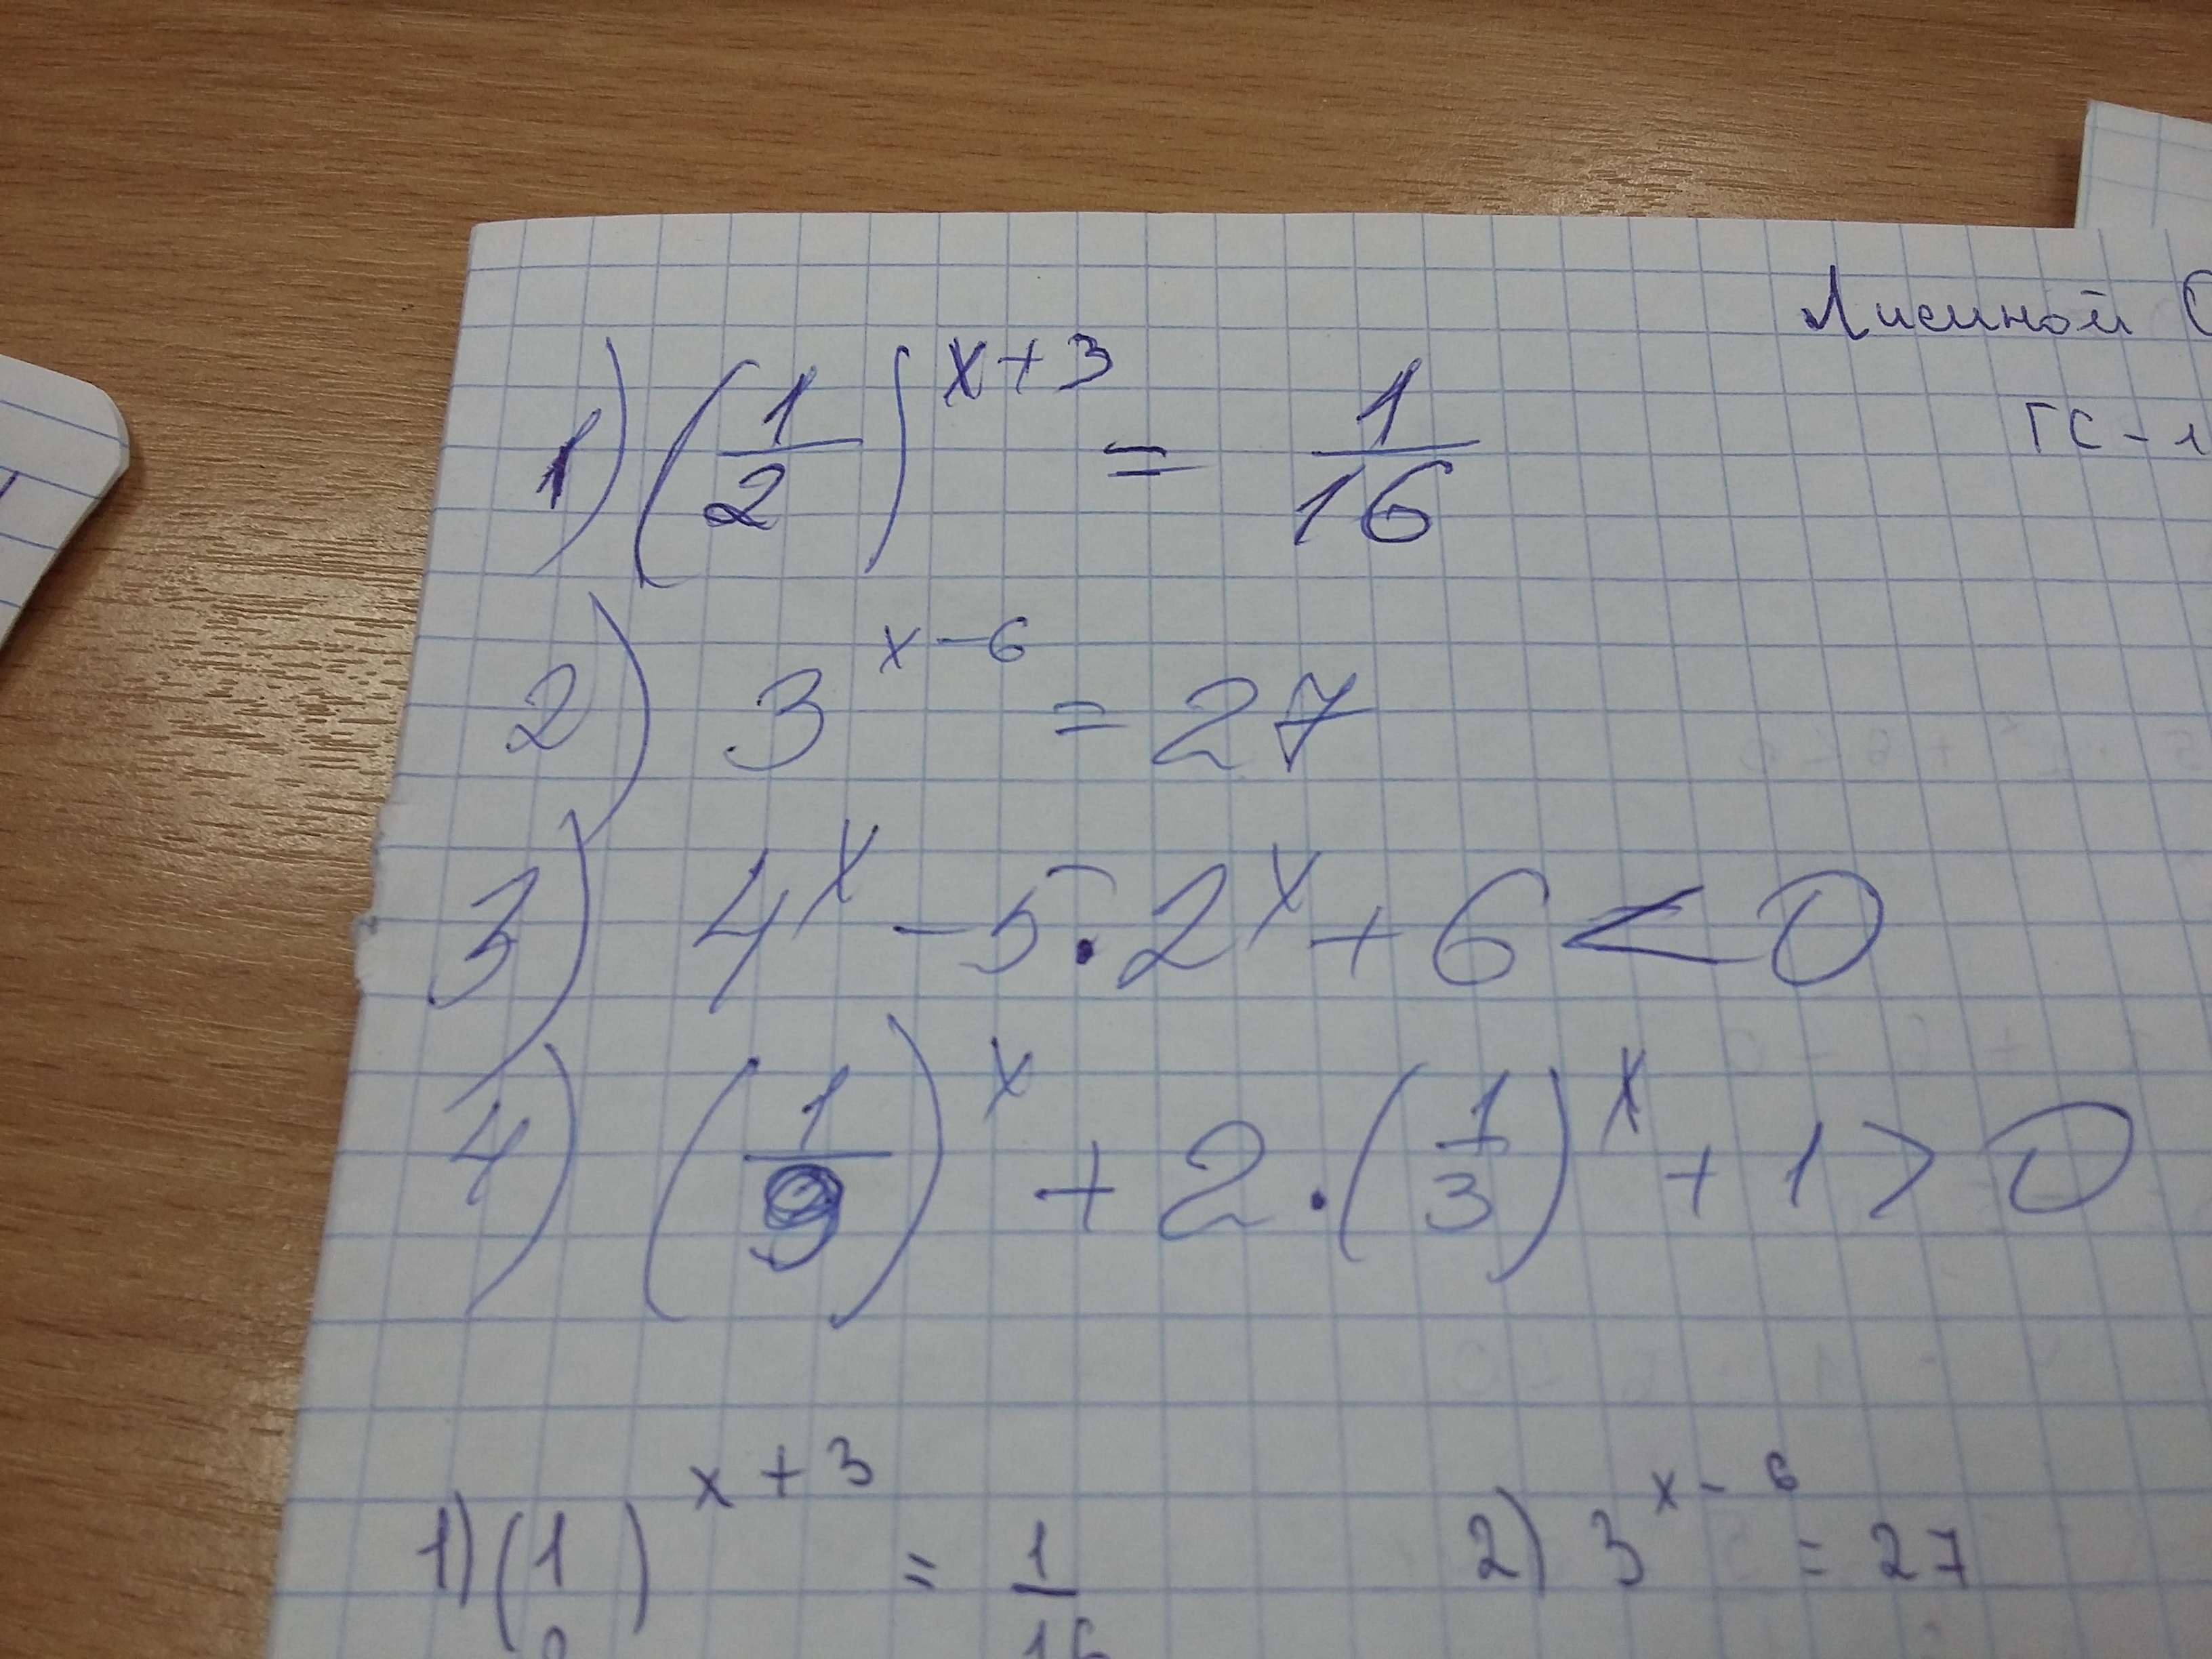 Лисиной
ГС-1
1) (1/2)^x+3 = 1/16
2) 3^x-6 = 27
3) 4^x - 5·2^x + 6 < 0
4) (1/9)^x + 2·(1/3)^x + 1 > 0
1) (1/2)^x+3 = 1/16 2) 3^x-6 = 27